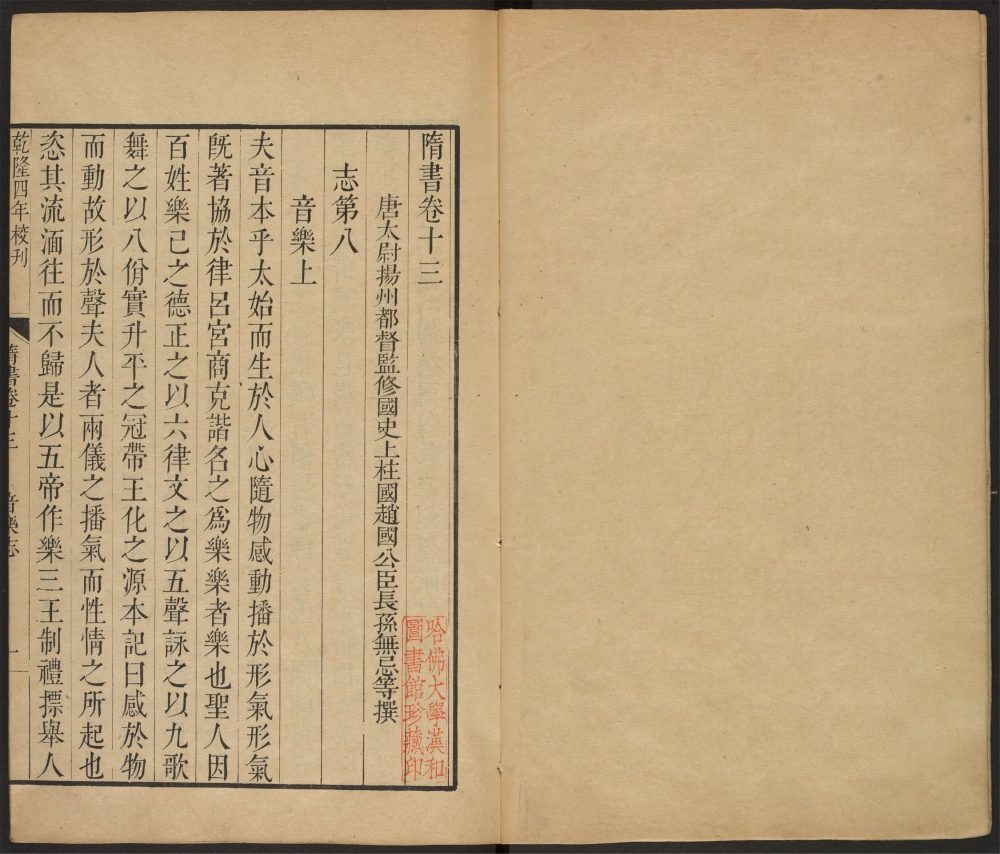 隋書卷十三
唐太尉揚州都督監修國史上柱國趙國公臣長孫無忌等撰
志第八
音樂上
夫音本乎太始而生於人心隨物感動播於形氣形氣
旣著協於律呂宮商克諧名之爲樂樂者樂也聖人因
百姓樂己之德正之以六律文之以五聲詠之以九歌
舞之以八佾實升平之冠帶王化之源本記曰感於物
而動故形於聲夫人者兩儀之播氣而性情之所起也
恣其流湎往而不歸是以五帝作樂三王制禮摽舉人
乾隆四年校刊
隋書卷十三 音樂志 一
哈佛大學漢和
圖書館珍藏印